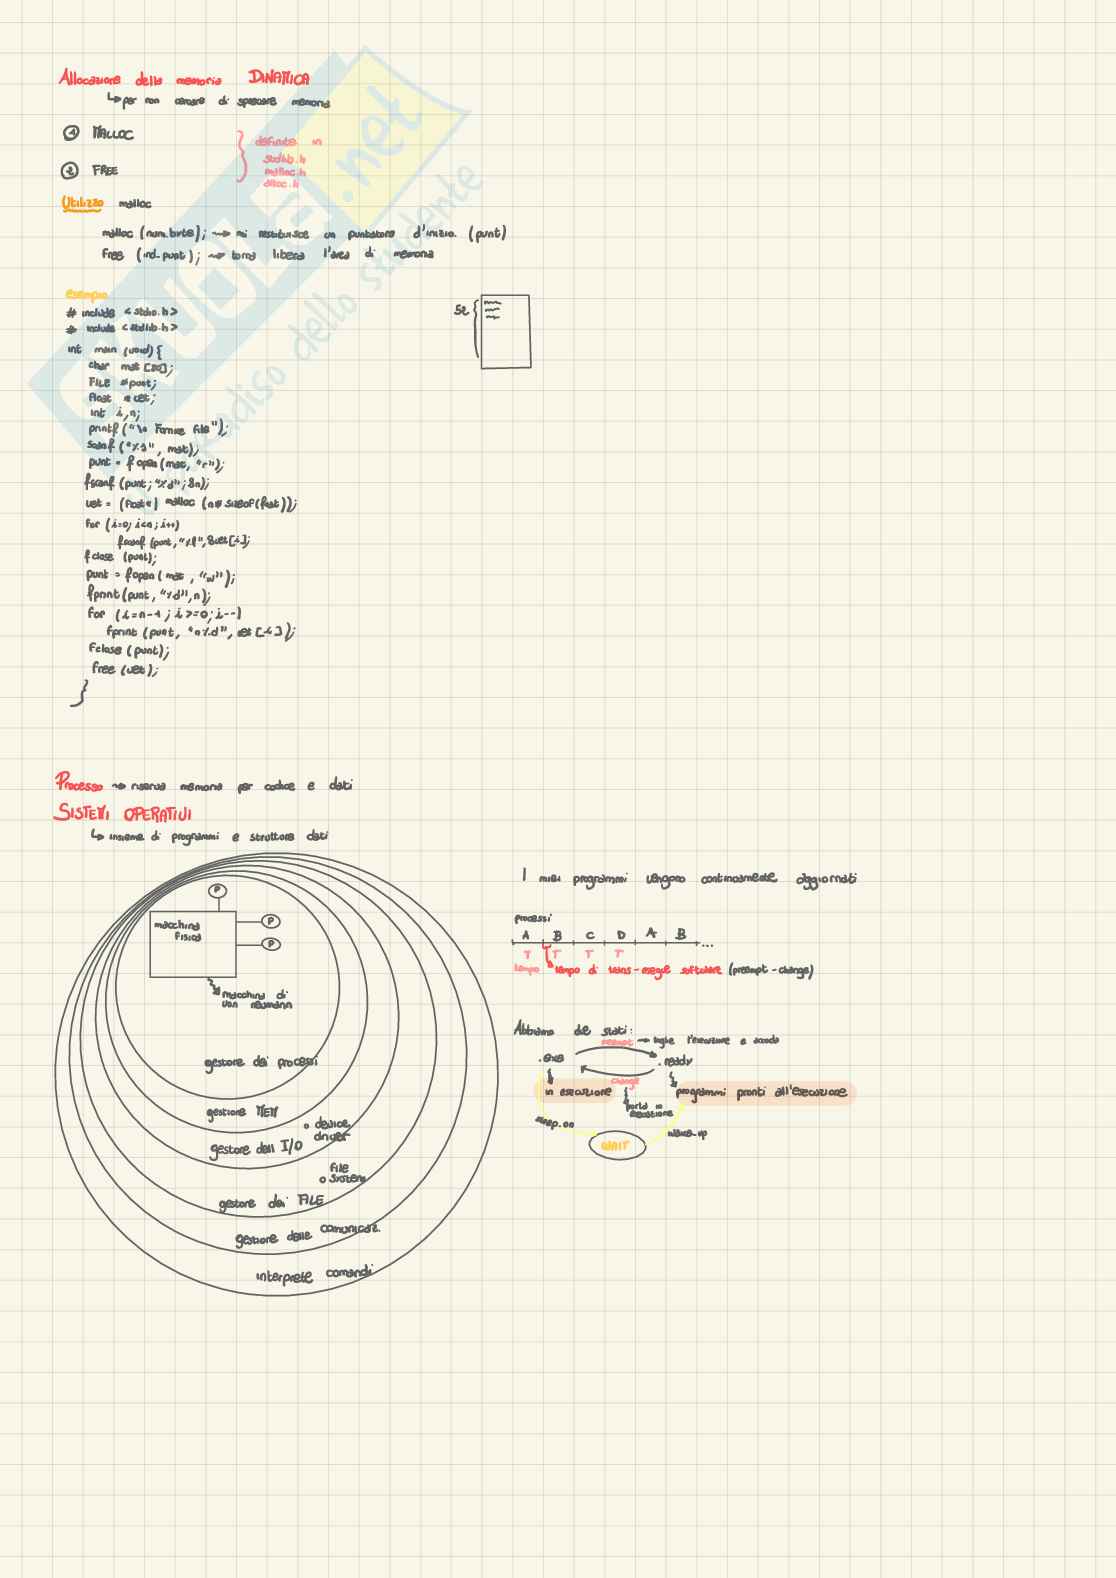 Allocazione della memoria DINAMICA
↳ per non cercare di sprecare memoria
① MALLOC
② FREE
definite in
stdlib.h
malloc.h
alloc.h
Utilizzo malloc
malloc (num.byte); → mi restituisce un puntatore d'inizio. (punt)
free (ind_punt); → torna libera l'area di memoria
esempio
# include <stdio.h>
# include <stdlib.h>
int main (void) {
char mat [20];
FILE *punt;
float *vet;
int i,n;
printf ("\n Fornire file");
scanf ("%s", mat);
punt = fopen (mat, "r");
fscanf (punt; "%d"; &n);
vet = (float*) malloc (n * sizeof(float));
for (i=0; i<n; i++)
fscanf (punt, "%f", &vet[i];
fclose (punt);
punt = fopen (mat, "w");
fprint (punt, "%d", n);
for (i=n-1; i>=0; i--)
fprint (punt, "\n%d", vet[i]);
fclose (punt);
free (vet);
}
Processo → riserva memoria per codice e dati
SISTEMI OPERATIVI
↳ insieme di programmi e strutture dati
P
macchina
fisica
P
P
macchina di
von neumann
gestore dei processi
gestione MEM
device
driver
gestore dell I/O
file
system
gestore dei FILE
gestore delle comunicaz.
interprete comandi
I miei programmi vengono continuamente aggiornati
processi
A B C D A B ...
T T T T
tempo tempo di trans-esegue software (preempt-change)
Abbiamo due stati:
preempt → toglie l'esecuzione a
.exe .ready
change
in esecuzione programmi pronti all'esecuzione
porta in
esecuzione
wake-up
WAIT
.net
dello studente